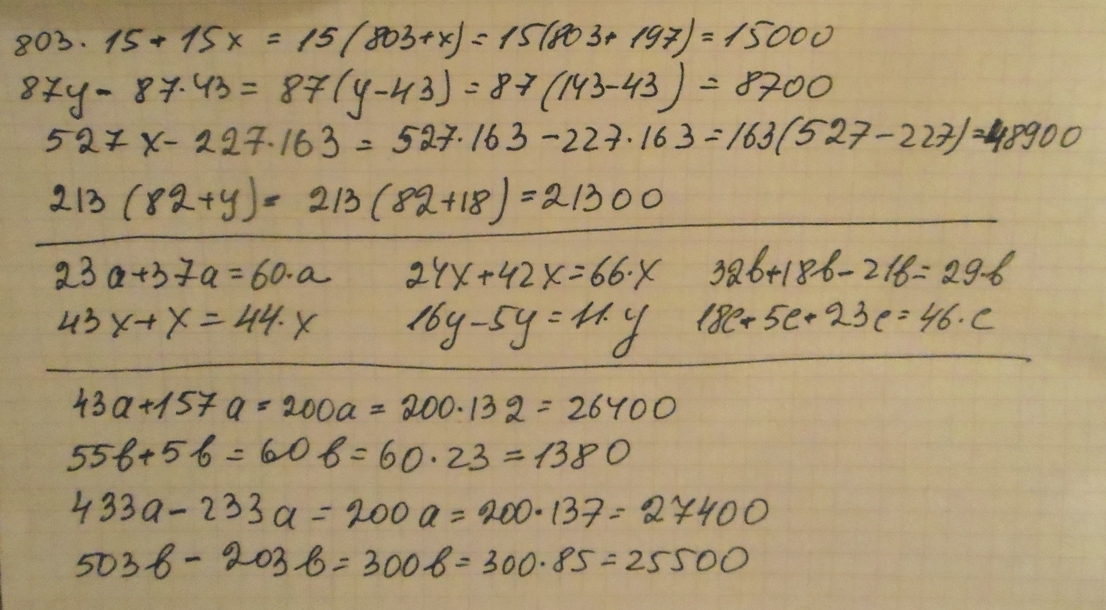 803·15+15x=15(803+x)=15(803+197)=15000
87y-87·43=87(y-43)=87(143-43)=8700
527x-227·163=527·163-227·163=163(527-227)=48900
213(82+y)=213(82+18)=21300
23a+37a=60·a 24x+42x=66·x 32b+18b-21b=29·b
43x+x=44·x 16y-5y=11·y 18c+5c+23c=46·c
43a+157a=200a=200·132=26400
55b+5b=60b=60·23=1380
433a-233a=200a=200·137=27400
503b-203b=300b=300·85=25500